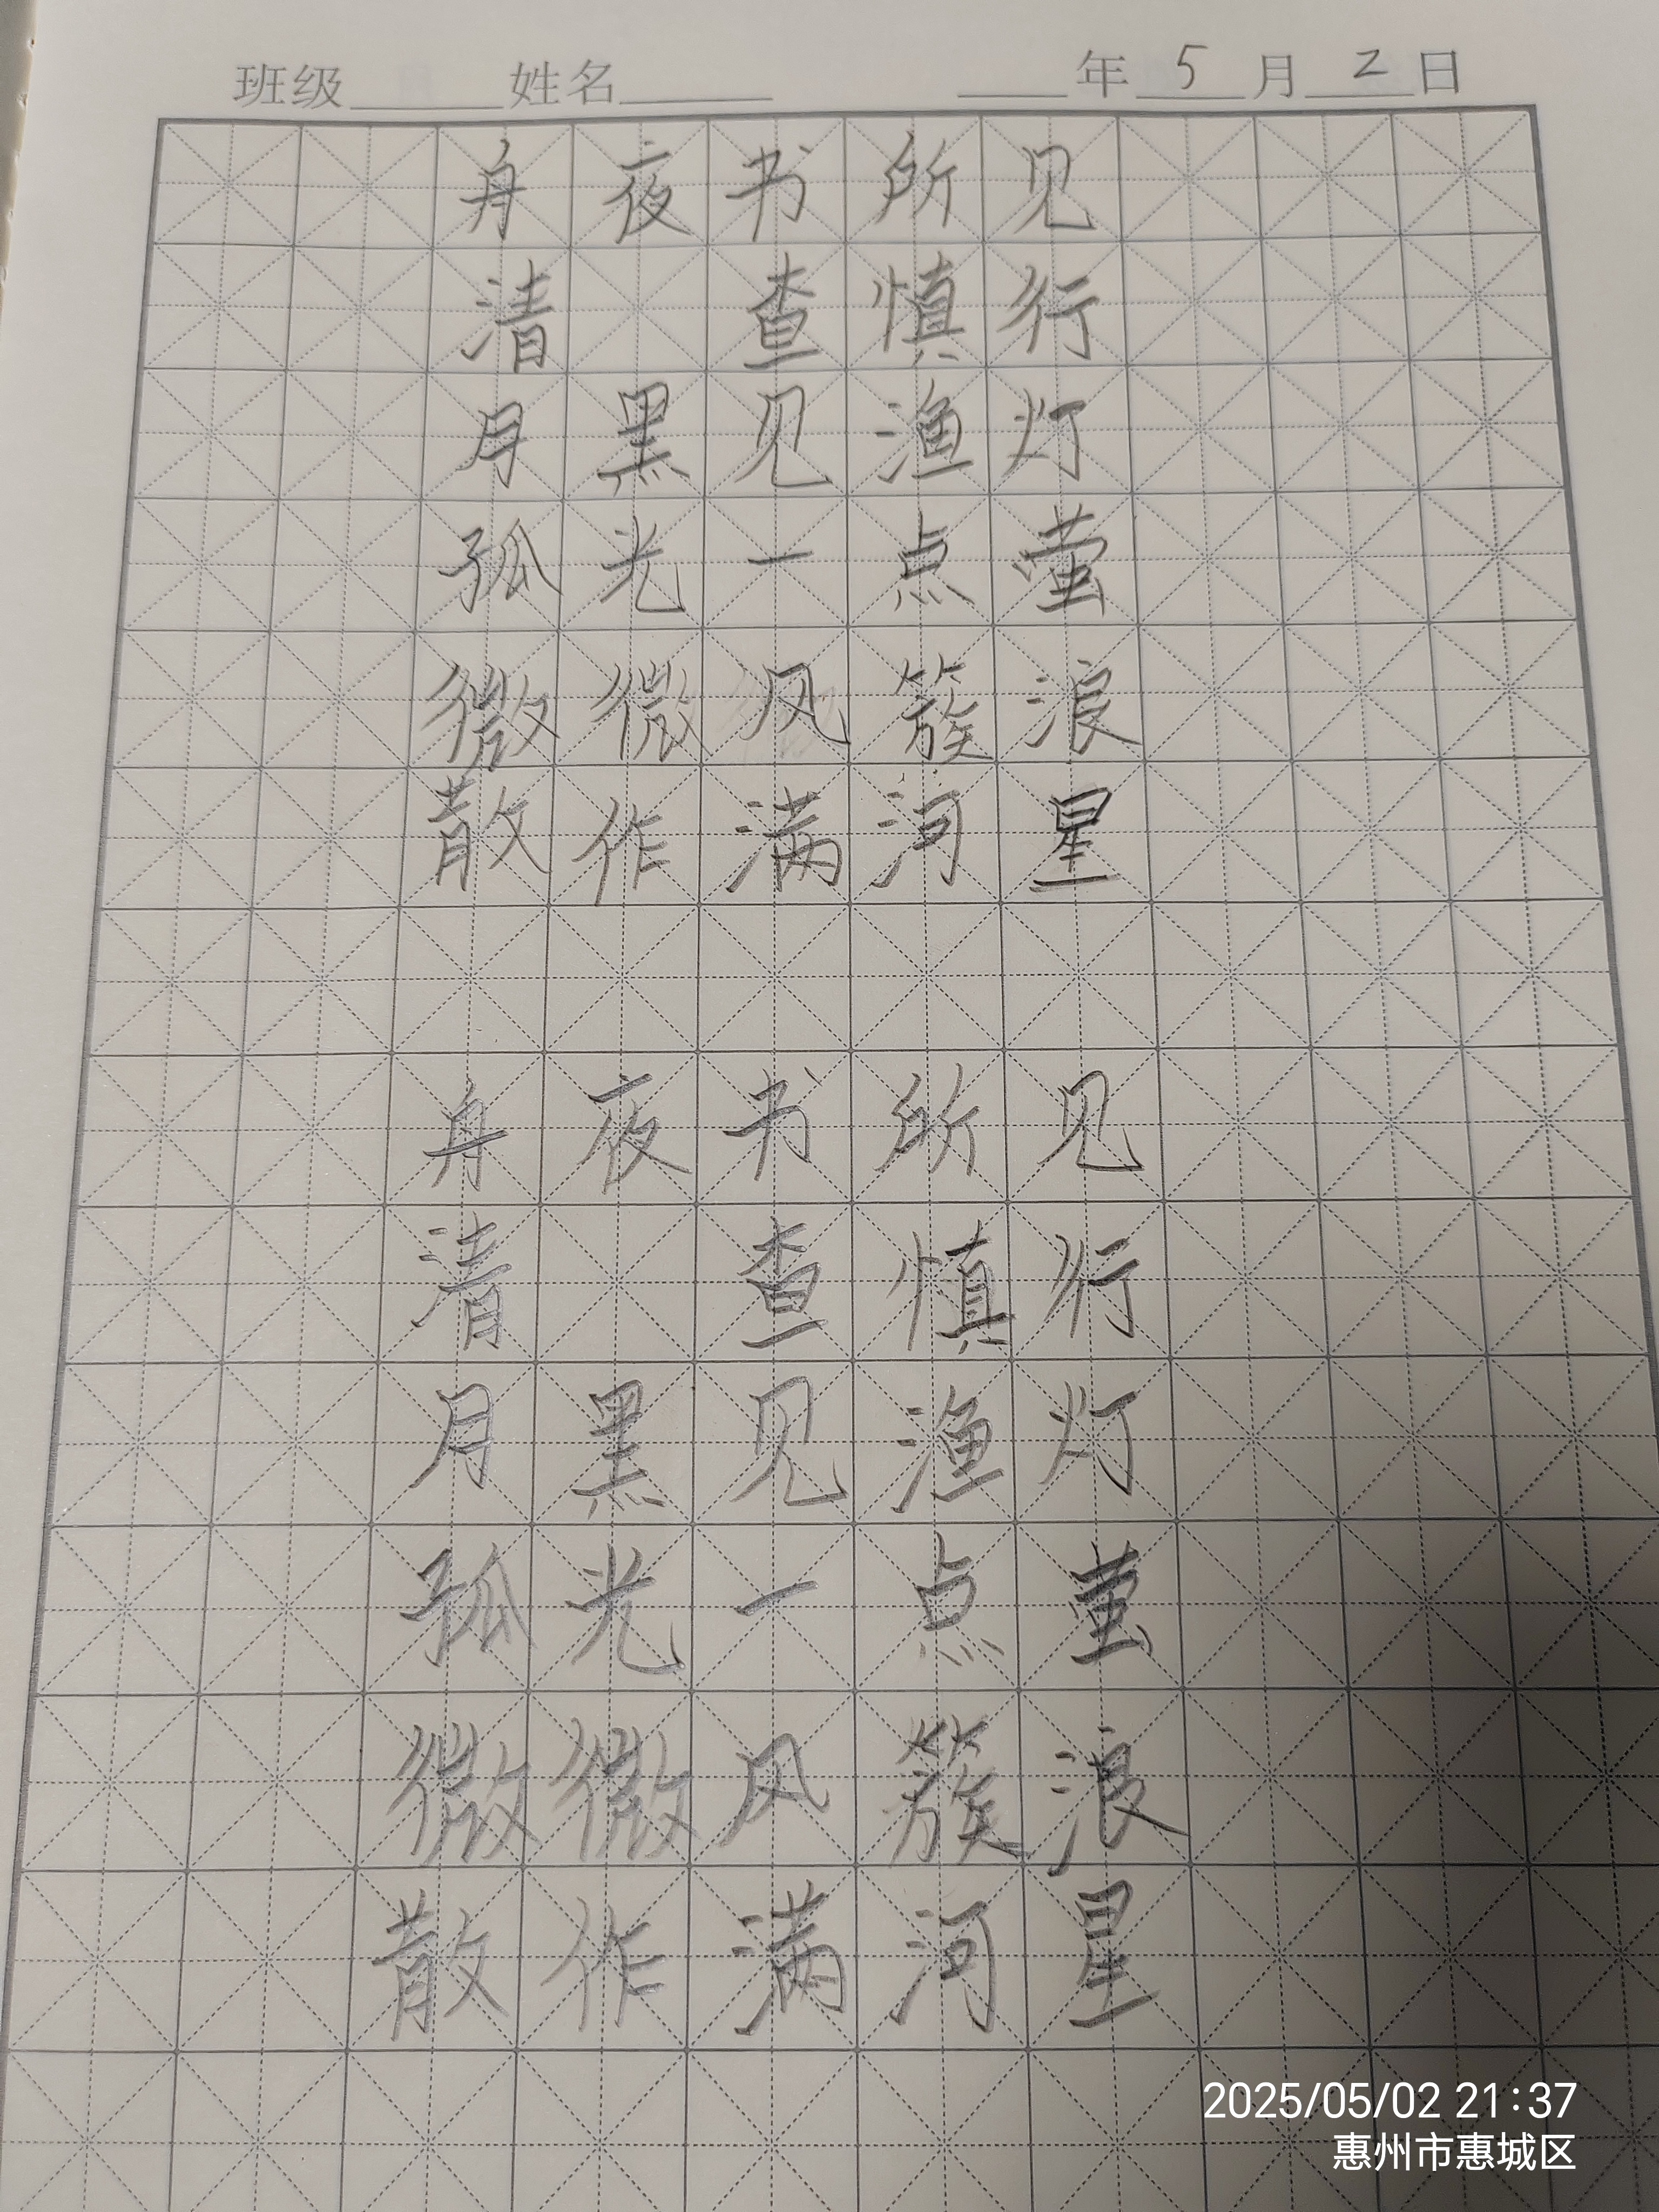 班级 姓名 年 5 月 2 日
舟夜书所见
清 查慎行
月黑见渔灯
孤光一点萤
微微风簇浪
散作满河星
舟夜书所见
清 查慎行
月黑见渔灯
孤光一点萤
微微风簇浪
散作满河星
2025/05/02 21:37
惠州市惠城区